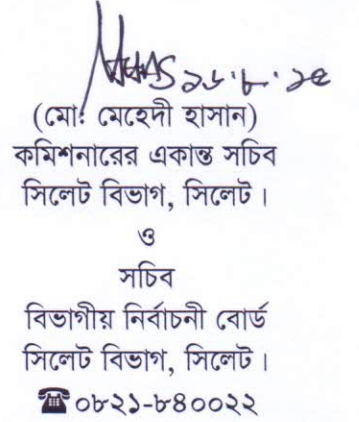 ২৬.৮.১৫
(মো: মেহেদী হাসান)
কমিশনারের একান্ত সচিব
সিলেট বিভাগ, সিলেট।
ও
সচিব
বিভাগীয় নির্বাচনী বোর্ড
সিলেট বিভাগ, সিলেট।
☎০৮২১-৮৪০০২২